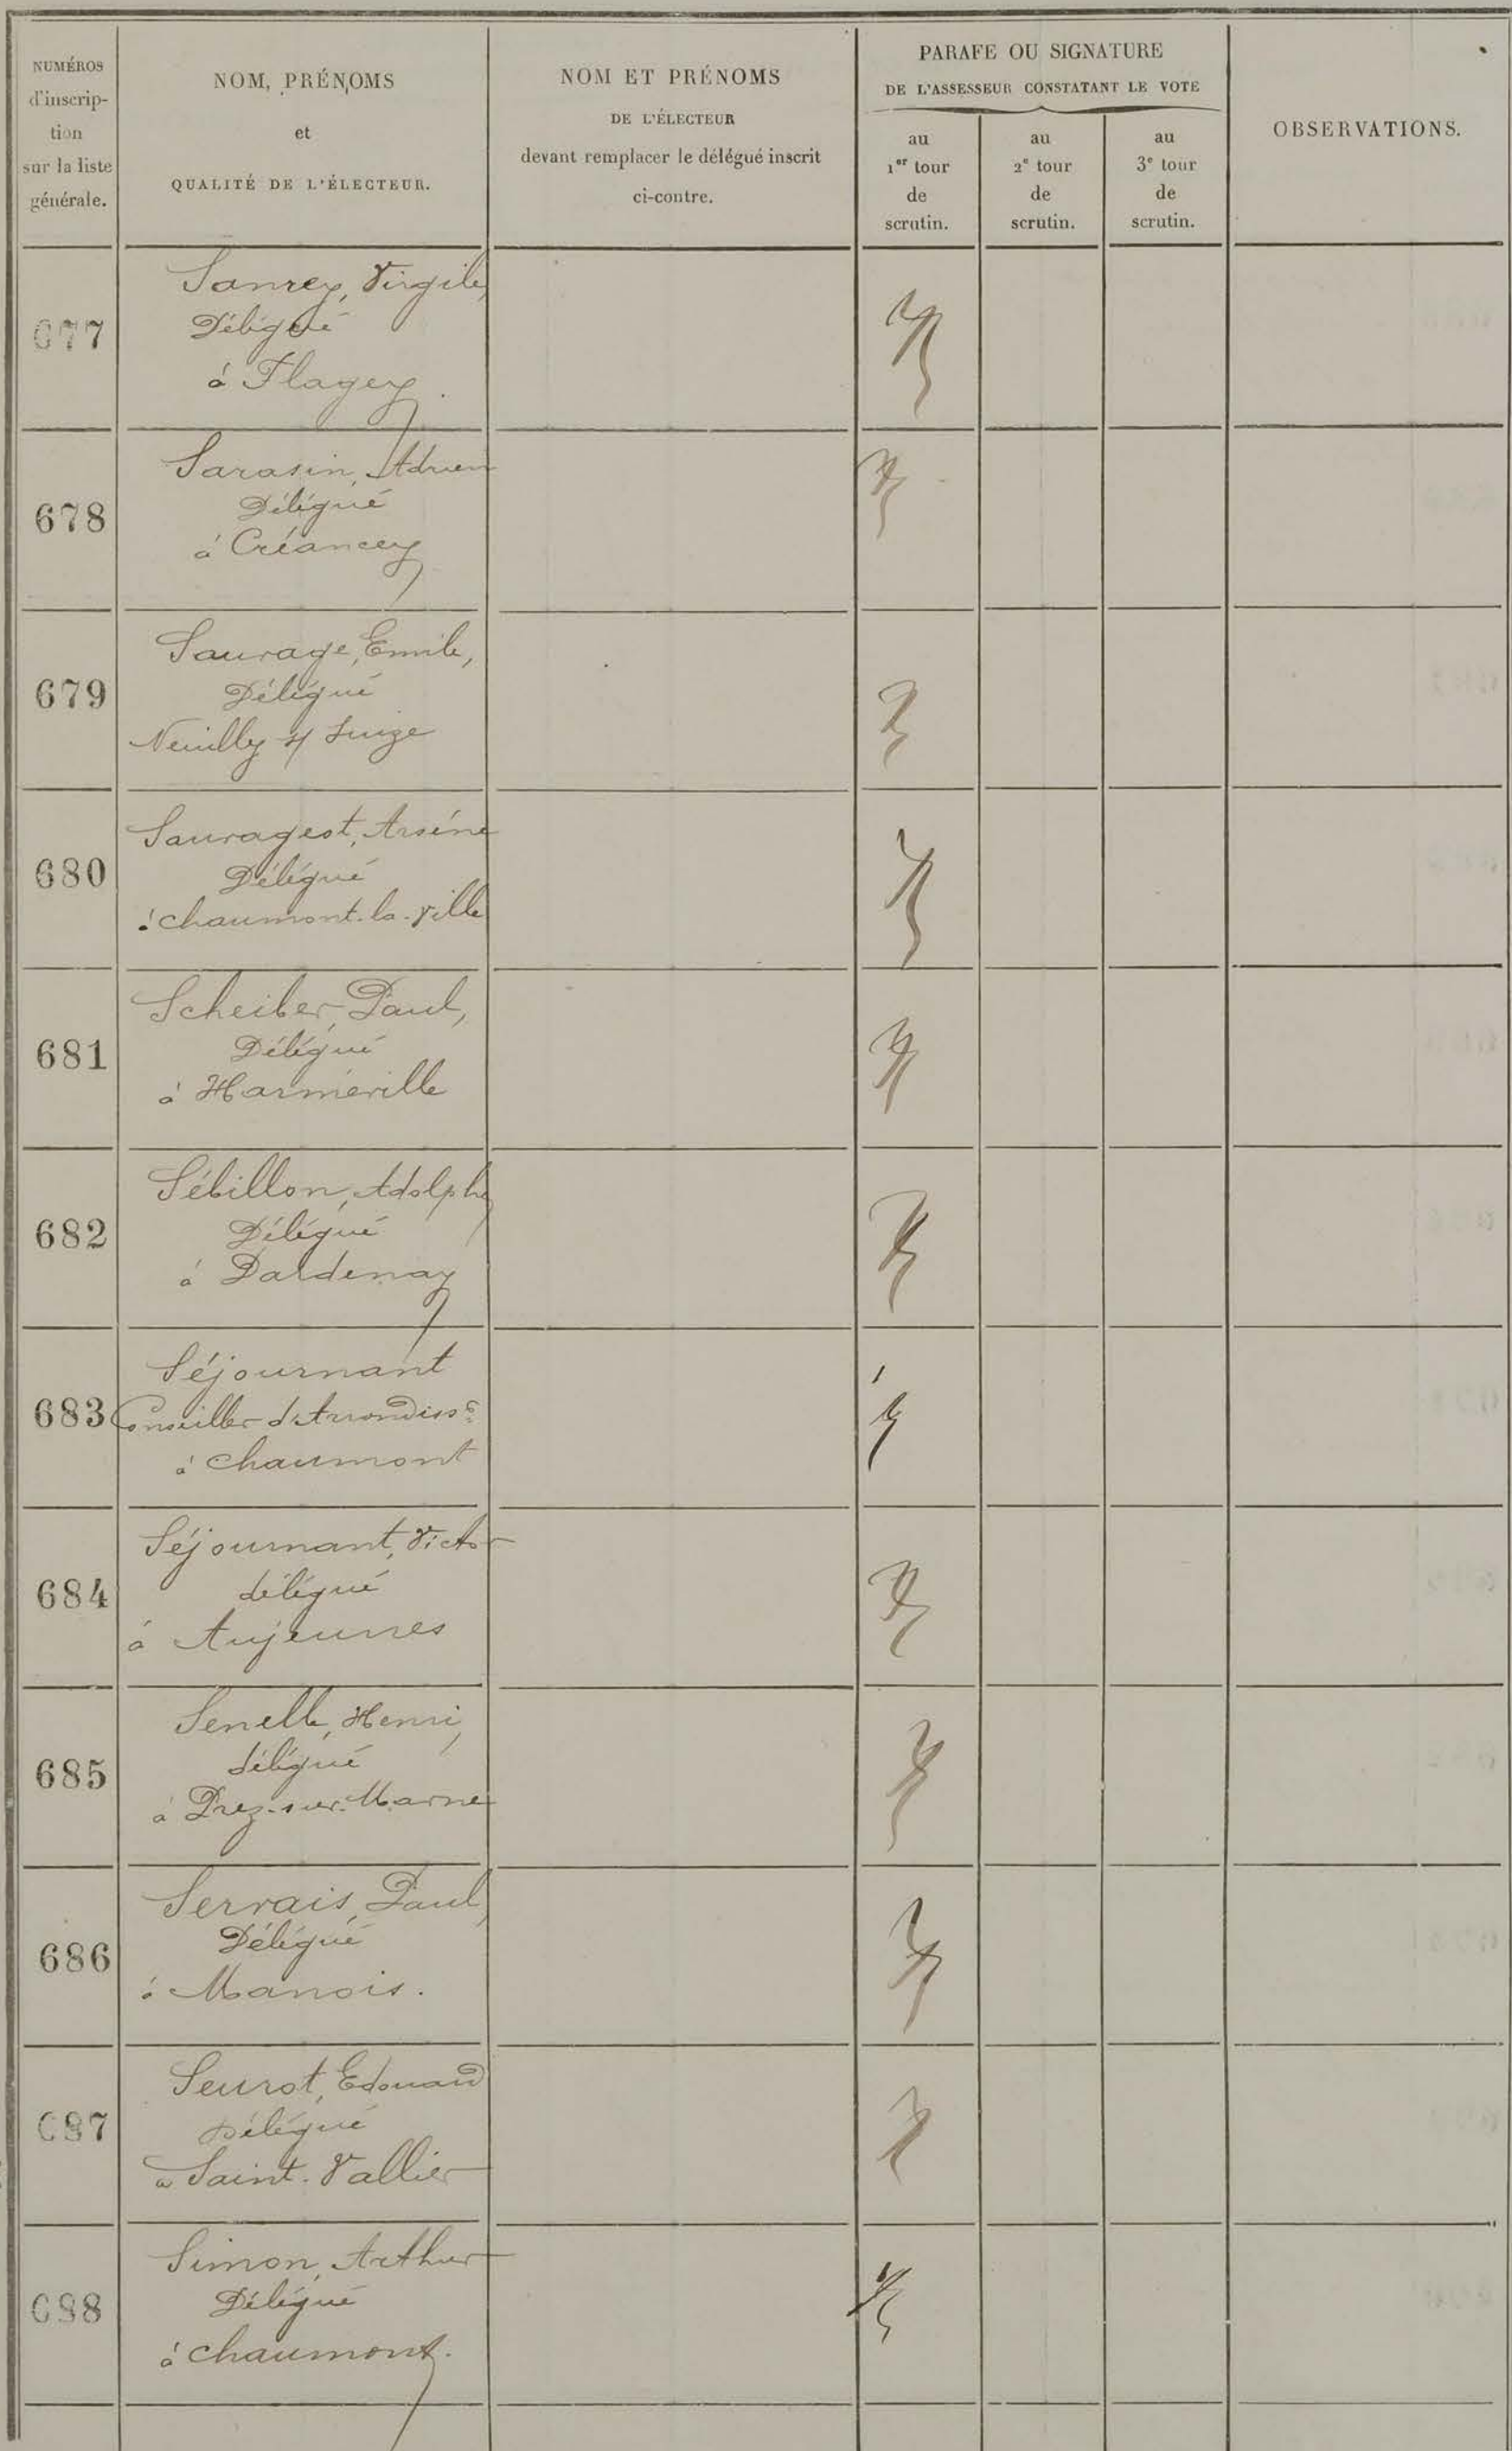 NUMÉROS
d'inscrip-
tion
sur la liste
générale.
NOM, PRÉNOMS
et
QUALITÉ DE L'ÉLECTEUR.
NOM ET PRÉNOMS
DE L'ÉLECTEUR
devant remplacer le délégué inscrit
ci-contre.
PARAFE OU SIGNATURE
DE L'ASSESSEUR CONSTATANT LE VOTE
au
1er tour
de
scrutin.
au
2e tour
de
scrutin.
au
3e tour
de
scrutin.
OBSERVATIONS.
677
Sanrey, Virgile,
Délégué
à Flagey.
678
Sarasin, Adrien
Délégué
à Créancey
679
Sauvage, Emile,
Délégué
Neuilly s/ Suize
680
Sauvageot, Arsène
Délégué
à Chaumont-la-Ville
681
Scheiber, Paul,
Délégué
à Harméville
682
Sébillon, Adolphe
Délégué
à Dardenay
683
Séjournant
Conseiller d'Arrondisst
à Chaumont
684
Séjournant, Victor
délégué
à Aujeurres
685
Senelle, Henri,
délégué
à Prez-sur-Marne
686
Servais, Paul,
Délégué
à Manois.
687
Seurot, Edouard
Délégué
à Saint-Vallier
688
Simon, Arthur
Délégué
à Chaumont.